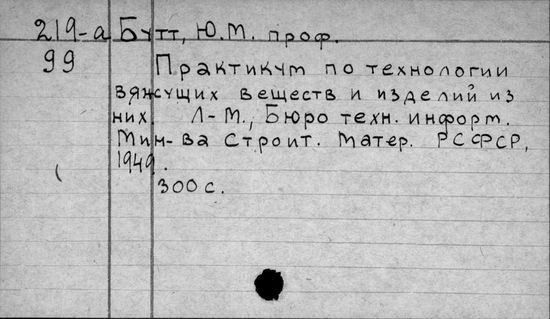 219-а Бутт, Ю.М. проф.
99 Практикум по технологии
вяжущих веществ и изделий из
них. Л-М., Бюро техн. информ.
Мин-ва Строит. Матер. РСФСР,
1949.
300 с.